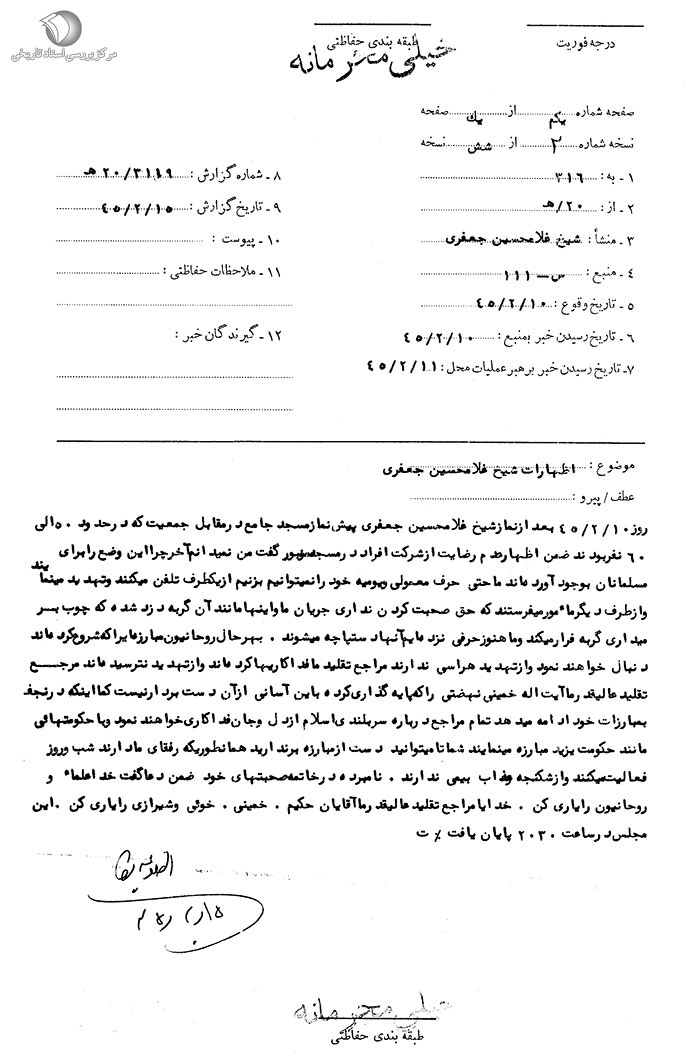 مرکز بررسی اسناد تاریخی
درجه فوریت
طبقه بندی حفاظتی
خیلی محرمانه
صفحه شماره یکم از یک صفحه
نسخه شماره ۲ از شش نسخه
۱ ـ به : ۳۱۶
۲ ـ از : ۲۰/هـ
۳ ـ منشأ : شیخ غلامحسین جعفری
۴ ـ منبع : س ـ ۱۱۱
۵ ـ تاریخ وقوع : ۴۵/۲/۱۰
۶ ـ تاریخ رسیدن خبر بمنبع : ۴۵/۲/۱۰
۷ـ تاریخ رسیدن خبر برهبر عملیات محل : ۴۵/۲/۱۱
۸ ـ شماره گزارش : ۲۰/۳۱۱۹ هـ
۹ ـ تاریخ گزارش : ۴۵/۲/۱۵
۱۰ ـ پیوست :
۱۱ ـ ملاحظات حفاظتی :
۱۲ ـ گیرندگان خبر :
موضوع : اظهارات شیخ غلامحسین جعفری
عطف / پیرو :
روز ۴۵/۲/۱۰ بعد از نماز شیخ غلامحسین جعفری پیش نماز مسجد جامع در مقابل جمعیت که در حدود ۵۰ الی
۶۰ نفر بودند ضمن اظهار عدم رضایت از شرکت افراد در مسجد مزبور گفت من نمیدانم آخر چرا این وضع را برای
مسلمانان بوجود آورده اند ما حتی حرف معمولی و یومیه خود را نمیتوانیم بزنیم از یکطرف تلفن میکنند و تهدید مینمایند
و از طرف دیگر مأمور میفرستند که حق صحبت کردن نداری جریان ما و اینها مانند آن گربه دزد شده که چوب بر
میداری گربه فرار میکند و ما هنوز حرفی نزده ایم آنها دستپاچه میشوند . بهر حال روحانیون مبارزه ایرا که شروع کرده اند
دنبال خواهند نمود و از تهدید هراسی ندارند مراجع تقلید ما فداکاریها کرده اند و از تهدید نترسیده اند مرجع
تقلید عالیقدر ما آیت اله خمینی نهضتی را که پایه گذاری کرده باین آسانی از آن دست بردار نیست کما اینکه در نجف
بمبارزات خود ادامه میدهد تمام مراجع درباره سربلندی اسلام از دل و جان فداکاری خواهند نمود و با حکومتهائی
مانند حکومت یزید مبارزه مینمایند شما تا میتوانید دست از مبارزه برندارید همانطوریکه رفقای ما دارند شب و روز
فعالیت میکنند و از شکنجه و عذاب بیمی ندارند . نامبرده در خاتمه صحبتهای خود ضمن دعا گفت خدا علماء و
روحانیون را یاری کن . خدایا مراجع تقلید عالیقدر ما آقایان حکیم . خمینی . خوئی و شیرازی را یاری کن . این
مجلس در ساعت ۲۰۳۰ پایان یافت ٪ ت
خیلی محرمانه
طبقه بندی حفاظتی